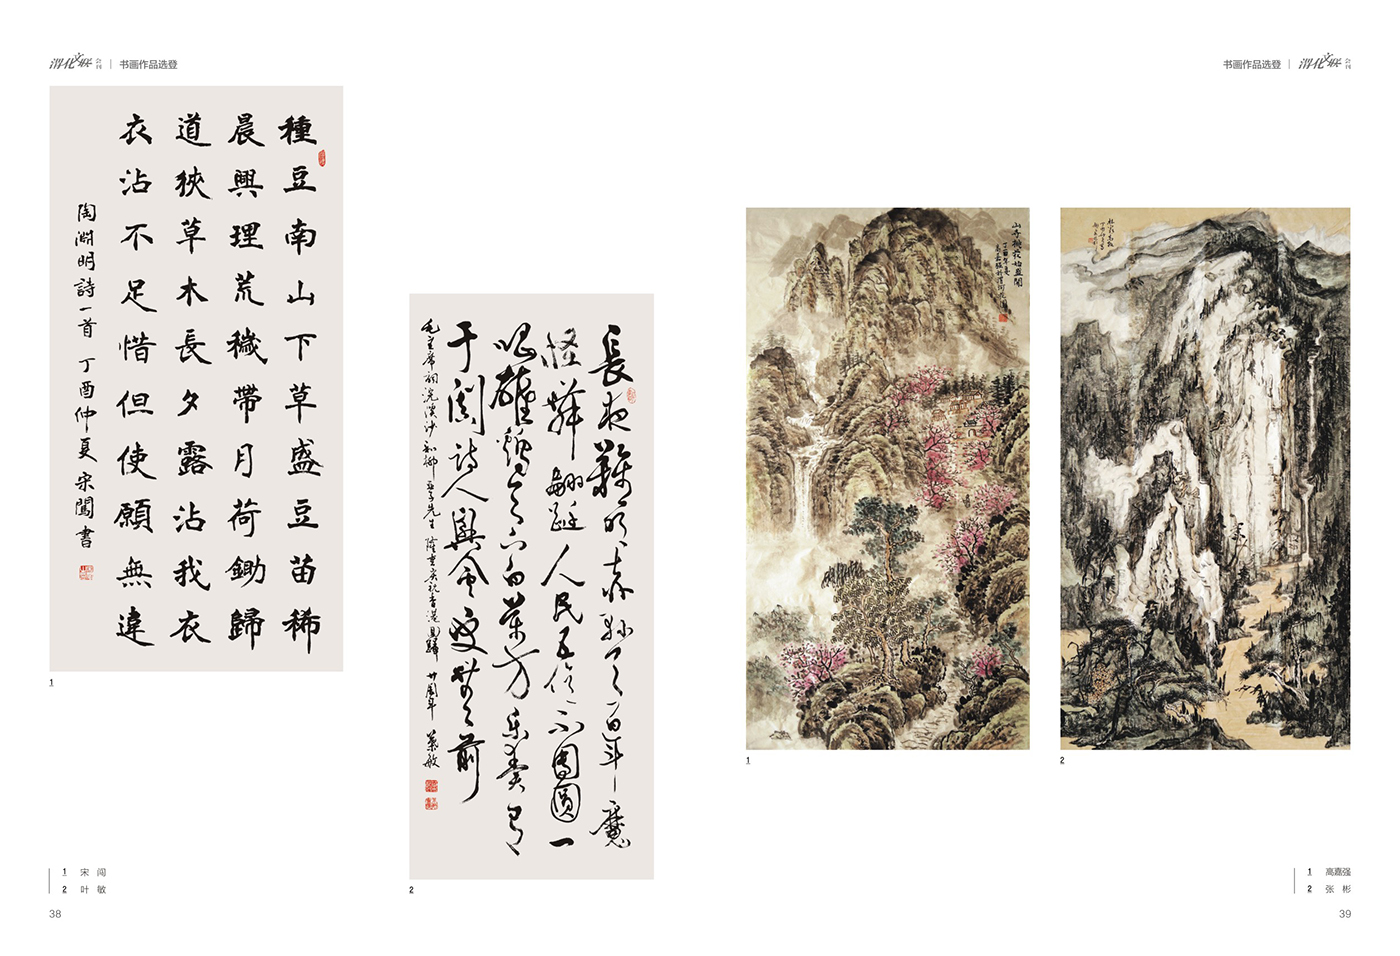 渭化文联 会刊 | 书画作品选登
種豆南山下草盛豆苗稀
晨興理荒穢帶月荷鋤歸
道狹草木長夕露沾我衣
衣沾不足惜但使願無違
陶淵明詩一首 丁酉仲夏 宋闖書
1
長夜難明赤縣天百年魔
怪舞翩躚人民五億不團圓一
唱雄雞天下白萬方樂奏有
于闐詩人興會更無前
毛主席詞浣溪沙和柳亞子先生 隆重慶祝香港回歸廿周年 葉敏
2
1 宋 闯
2 叶 敏
38
书画作品选登 | 渭化文联 会刊
山寺桃花始盛開
1
2
1 高嘉强
2 张 彬
39